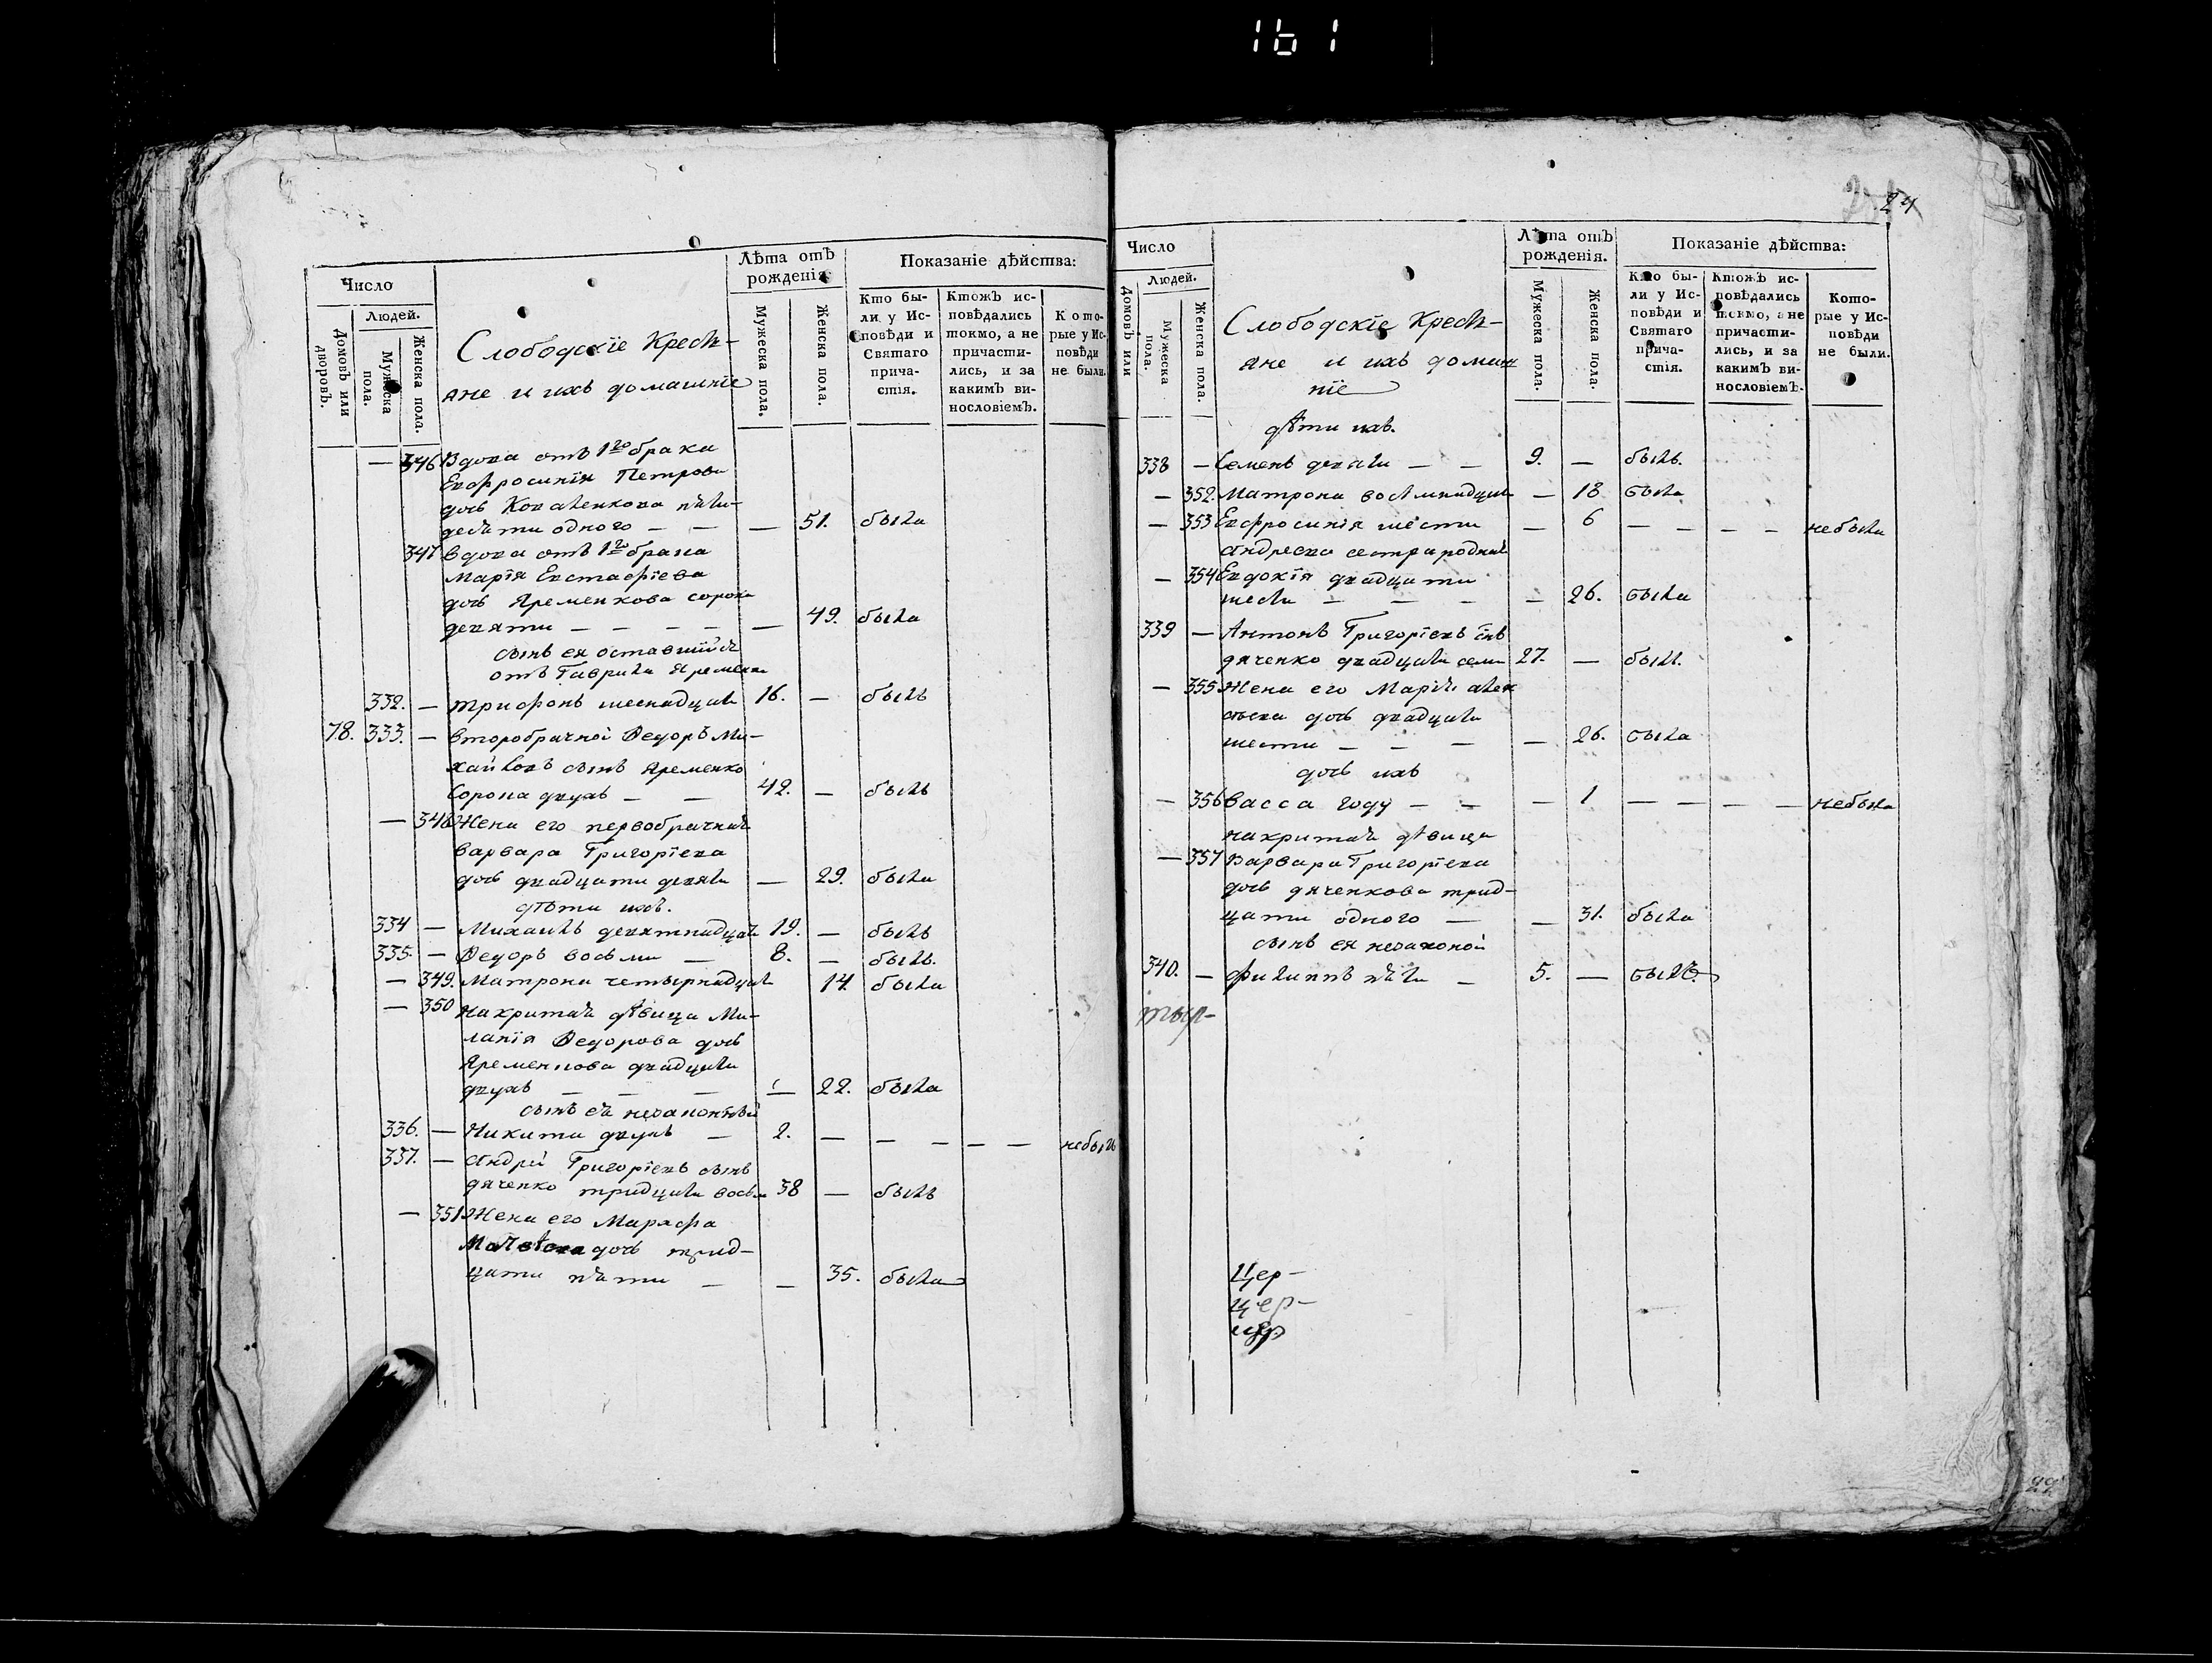 161
Число
Людей.
Домовъ или дворовъ.
Мужеска пола.
Женска пола.
Слободскіе Кресть-
яне и ихъ домашніе
Лѣта отъ рожденія
Мужеска пола.
Женска пола.
Показаніе дѣйства:
Кто бы-
ли у Ис-
повѣди и
Святаго
прича-
стія.
Ктожъ ис-
повѣдались
токмо, а не
причасти-
лись, и за
какимъ ви-
нословіемъ.
Кото-
рые у Ис-
повѣди
не были.
— 346 Вдова отъ 1го брака
Евфросинія Петрова
дочь Коваленкова пяти-
десяти одного — — — 51. была
347 вдова отъ 1го брака
Марія Евстафіева
дочь Яременкова сорока
девяти — — — — — 49. была
сынъ ея оставшійся
отъ Гаврила Яременка
332. — Трифонъ шеснадцати 16. — былъ
78. 333. — второбрачной Ѳедоръ Ми-
хайловъ сынъ Яременко
сорока двухъ — — 42. — былъ
— 348 Жена его первобрачная
Варвара Григоріева
дочь двадцати девяти — 29. была
дѣти ихъ.
334 — Михаилъ девятнадцати 19. — былъ
335. — Ѳедоръ восьми — 8. — былъ.
— 349. Матрона четырнадцати 14 была
— 350 накритая дѣвица Ми-
ланія Ѳедорова дочь
Яременкова двадцати
двухъ — — — — 22. была
сынъ ея незаконный
336. — Никита двухъ — 2. — — — — — небылъ
337. — Андрей Григоріевъ сынъ
дяченко тридцати восьми 38 — былъ
— 351 Жена его Марѳа
дочь трид-
цати пяти — — 35. была
24
Число
Людей.
Домовъ или
Мужеска пола.
Женска пола.
Слободскіе Кресть-
яне и ихъ домаш
ніе
Лѣта отъ рожденія.
Мужеска пола.
Женска пола.
Показаніе дѣйства:
Кто бы-
ли у Ис-
повѣди и
Святаго
прича-
стія.
Ктожъ ис-
повѣдались
токмо, а не
причасти-
лись, и за
какимъ ви-
нословіемъ.
Кото-
рые у Ис-
повѣди
не были.
дѣти ихъ.
338 — Семенъ девяти — — 9. — былъ.
— 352. Матрона восемнадцати — 18 была
— 353 Евфросинія шести — 6 — — — — небыла
андреева сестра родная
— 354 Евдокія двадцати
шести — — — — 26. была
339 — Антонъ Григоріевъ снъ
дяченко двадцати семи 27. — былъ.
— 355 Жена его Марія алек
сѣева дочь двадцати
шести — — — — 26. была
дочь ихъ
— 356 васса году — — — 1 — — — — небыла
накритая дѣвица
— 357 Варвара Григоріева
дочь дяченкова трид-
цати одного — — 31. была
сынъ ея незаконой
340. — филиппъ пяти — 5. — былъ
Цер-
цер-
цер